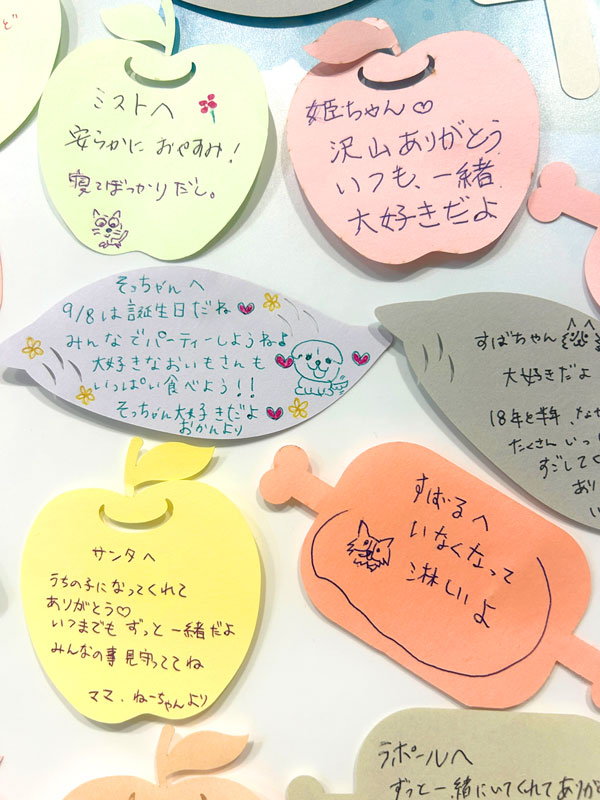 ど
ミストへ
安らかに おやすみ!
寝てばっかりだし。
姫ちゃん♡
沢山ありがとう
いつも、一緒
大好きだよ
そっちゃんへ
9/8は誕生日だね
みんなでパーティーしようねよ
大好きなおいもさんも
いっぱい食べよう!!
そっちゃん大好きだよ
おかんより
すばちゃん
大好きだよ
18年と半年、なが
たくさん いっし
すごしてく
あり
い
サンタへ
うちの子になってくれて
ありがとう♡
いつまでも ずっと一緒だよ
みんなの事見守っててね
ママ、ねーちゃんより
すばるへ
いなくなって
淋しいよ
ラポールへ
ずっと一緒にいてくれてありが